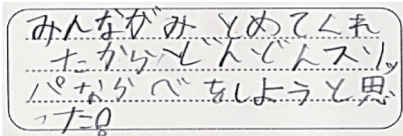 みんながみとめてくれ
たからどんどんスリッ
パならべをしようと思
った。